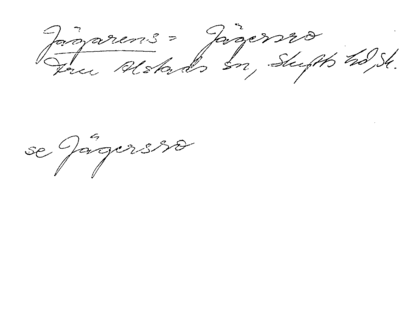 Jägarens = Jägersro
Fru Alstads sn, Skytts hd, Sk.
se Jägersro